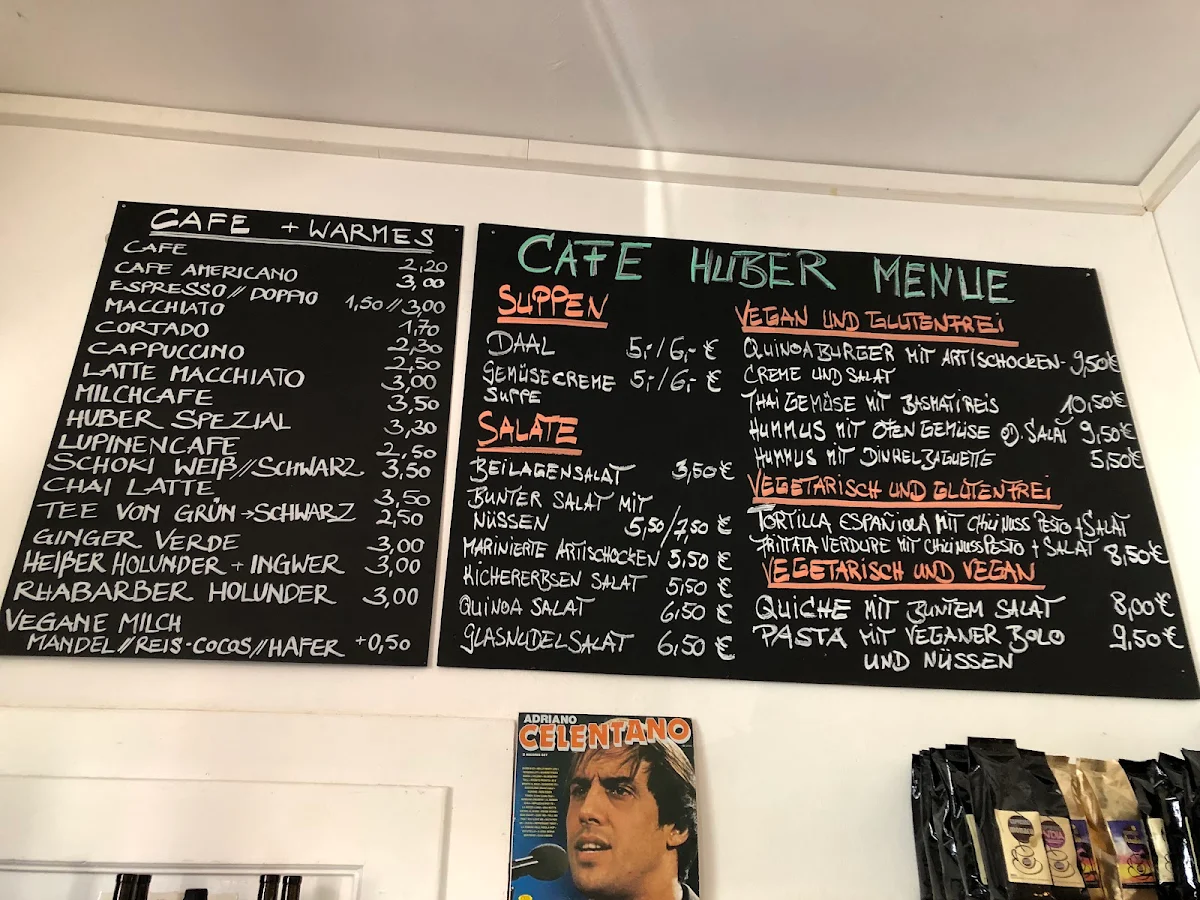 CAFE + WARMES
CAFE 2,20
CAFE AMERICANO 3,00
ESPRESSO // DOPPIO 1,50 // 3,00
MACCHIATO 1,70
CORTADO 2,30
CAPPUCCINO 2,50
LATTE MACCHIATO 3,00
MILCHCAFE 3,50
HUBER SPEZIAL 3,30
LUPINENCAFE 2,50
SCHOKI WEIß // SCHWARZ 3,50
CHAI LATTE 3,50
TEE VON GRÜN → SCHWARZ 2,50
GINGER VERDE 3,00
HEIßER HOLUNDER + INGWER 3,00
RHABARBER HOLUNDER 3,00
VEGANE MILCH
MANDEL // REIS-COCOS // HAFER +0,50
CAFE HUBER MENUE
SUPPEN
DAAL 5,-/6,- €
GEMÜSECREME 5,-/6,- €
SUPPE
SALATE
BEILAGENSALAT 3,50 €
BUNTER SALAT MIT
NÜSSEN 5,50/7,50 €
MARINIERTE ARTISCHOCKEN 5,50 €
KICHERERBSEN SALAT 5,50 €
QUINOA SALAT 6,50 €
GLASNUDELSALAT 6,50 €
VEGAN UND GLUTENFREI
QUINOABURGER MIT ARTISCHOCKEN- 9,50 €
CREME UND SALAT
THAI GEMÜSE MIT BASMATIREIS 10,50 €
HUMMUS MIT OFENGEMÜSE OD. SALAT 9,50 €
HUMMUS MIT DINKELBAGUETTE 5,50 €
VEGETARISCH UND GLUTENFREI
TORTILLA ESPAÑOLA MIT CHILI NUSS PESTO + SALAT
FRITTATA VERDURE MIT CHILI NUSS PESTO + SALAT 8,50 €
VEGETARISCH UND VEGAN
QUICHE MIT BUNTEM SALAT 8,00 €
PASTA MIT VEGANER BOLO 9,50 €
UND NÜSSEN
ADRIANO
CELENTANO